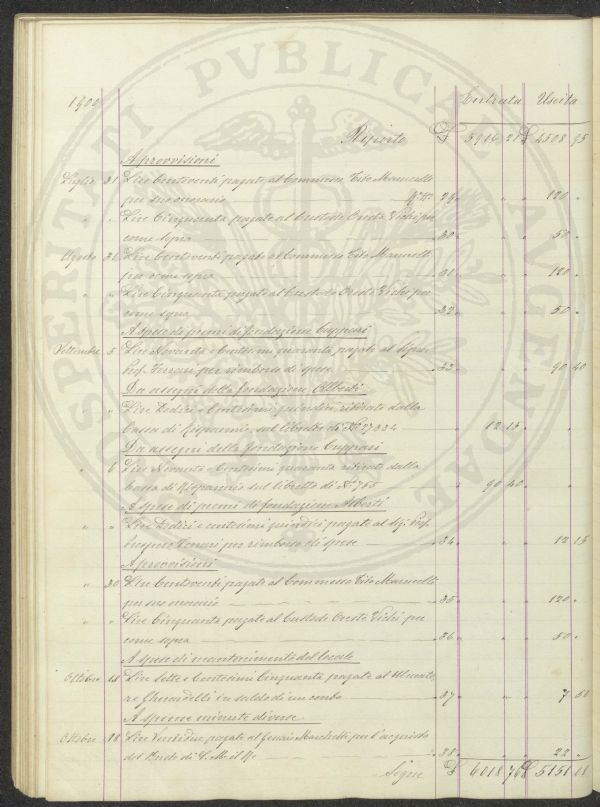 PROSPERITATI PVBLICAE AVGENDAE
1900 Entrata Uscita
Riporto £ 5916 21 £ 4508 95
A provvisioni
Luglio 31 Lire Centoventi pagate al Commesso Tito Marucelli
per suo onorario N.° 29 " " 120 "
" " Lire Cinquanta pagate al Custode Oreste Vichi per
come sopra 30 " " 50 "
Agosto 31 Lire Centoventi pagate al Commesso Tito Marucelli
per come sopra 31 " " 120 "
" " Lire Cinquanta pagate al Custode Oreste Vichi per
come sopra 32 " " 50 "
A spese di premi di fondazione Cuppari
Settembre 5 Lire Novanta e Centesimi quaranta pagate al Signor
Prof. per rimborso di spese 33 " " 90 40
Da assegni della fondazione Alberti
" " Lire Dodici e Centesimi quindici ritirate dalla
Cassa di Risparmio sul libretto di N° 27334 " 12 15 "
Da assegni della fondazione Cuppari
" 6 Lire Novanta e Centesimi quaranta ritirate dalla
Cassa di Risparmio sul libretto di N° 765 " 90 40 "
A spese di premi di fondazione Alberti
" " Lire Dodici e centesimi quindici pagate al Sig. Prof.
per rimborso di spese 34 " " 12 15
A provvisioni
" 30 Lire Centoventi pagate al Commesso Tito Marucelli
per suo onorario 35 " " 120 "
" " Lire Cinquanta pagate al Custode Oreste Vichi per
come sopra 36 " " 50 "
A spese di mantenimento del locale
Ottobre Lire Sette e Centesimi Cinquanta pagate al
Gherardelli in saldo di un conto 37 " " 7 50
A spese minute diverse
Ottobre 18 Lire Ventidue pagate al Marchetti per l'acquisto
del Busto di S. M. il Re 38 " " 22 "
Segue £ 6018 76 £ 5151 00